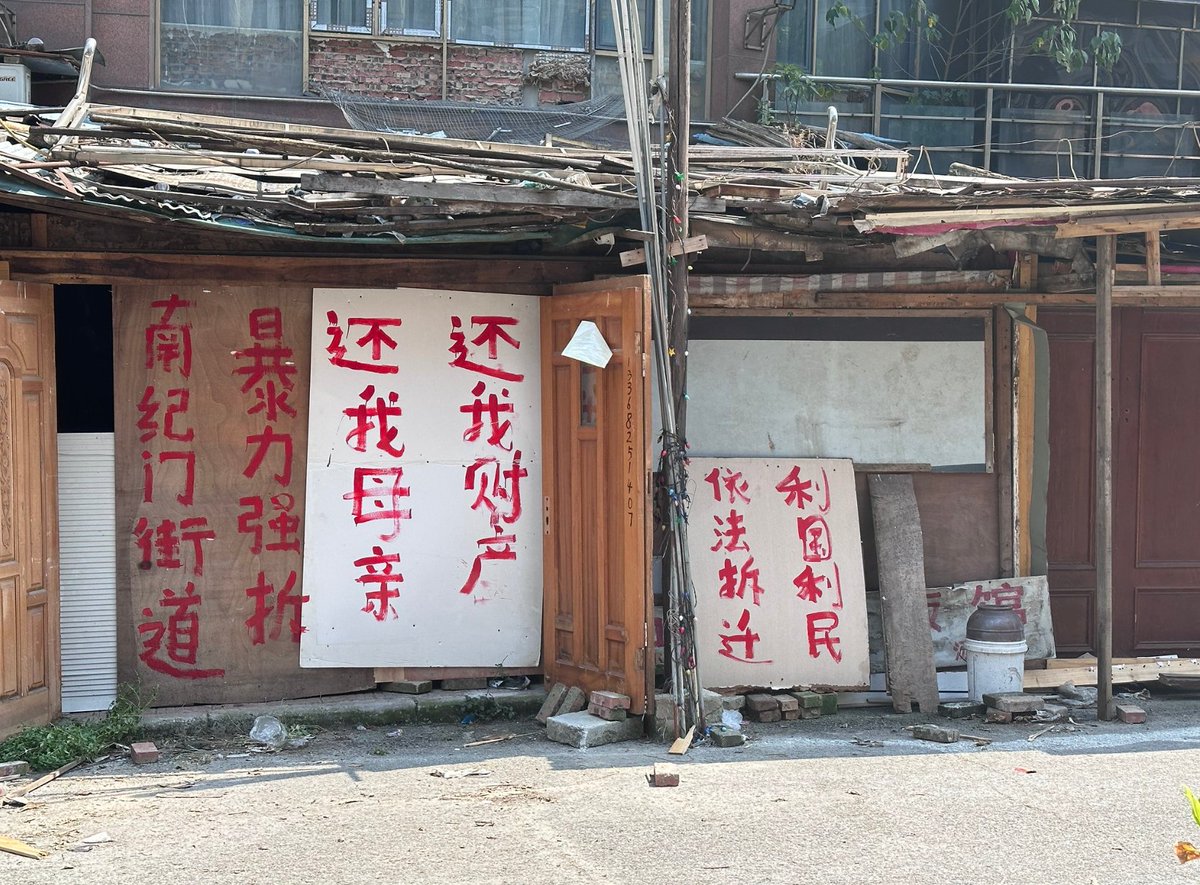 南纪门街道
暴力强拆
还我母亲
还我财产
13368251407
依法拆迁
利国利民
馆
GREE